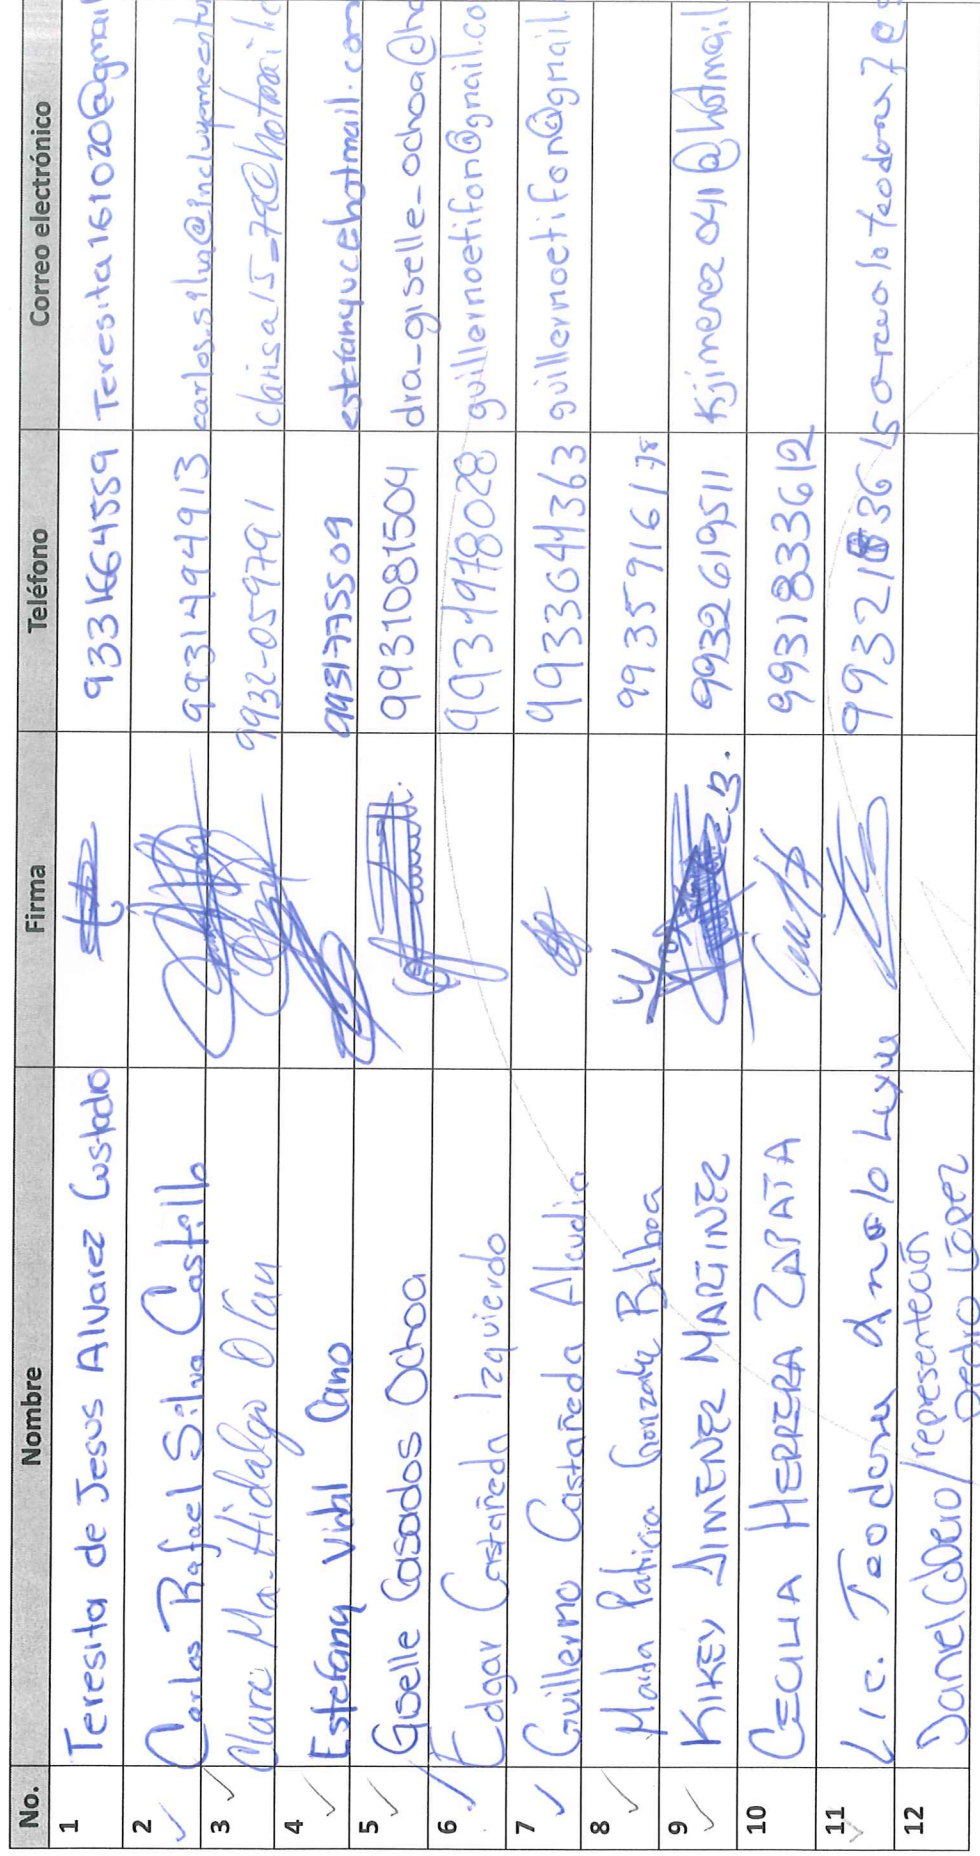 No. Nombre Firma Teléfono Correo electrónico
1 Teresita de Jesus Alvarez Custodio 9331664559 Teresita161020@gmail
2 Carlos Rafael Silva Castillo 9931494913 carlos.silva@incluyemeentu
3 Clara Ma. Hidalgo Olan 9932-059791 clarisa15_79@hotmail.c
4 Estefany Vidal Cano 9931775509 estefanyvc@hotmail.com
5 Giselle Casados Ochoa 9931081504 dra_giselle_ochoa@ho
6 Edgar Castañeda Izquierdo 9934978028 guillermoetifon@gmail.co
7 Guillermo Castañeda Alcudia 9933644363 guillermoetifon@gmail.
8 Patricia Gonzalez Balboa 99359161 78
9 KIKEY JIMENEZ MARTINEZ 9932619511 Kjimenez0411@hotmail
10 CECILIA HERRERA ZAPATA 9931833612
11 Lic. Teodoro
12 Daniel /representación
Pedro López